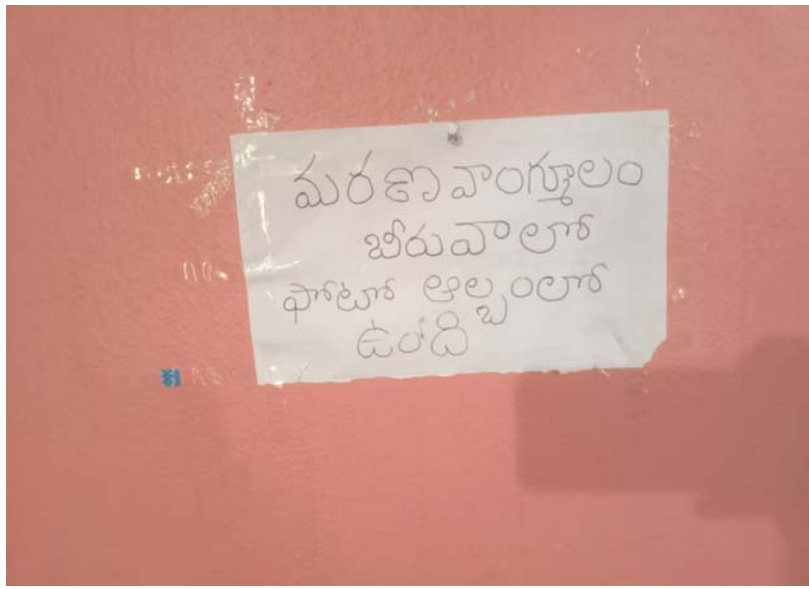 మరణ వాంగ్మూలం
బీరువాలో
ఫోటో ఆల్బంలో
ఉంది